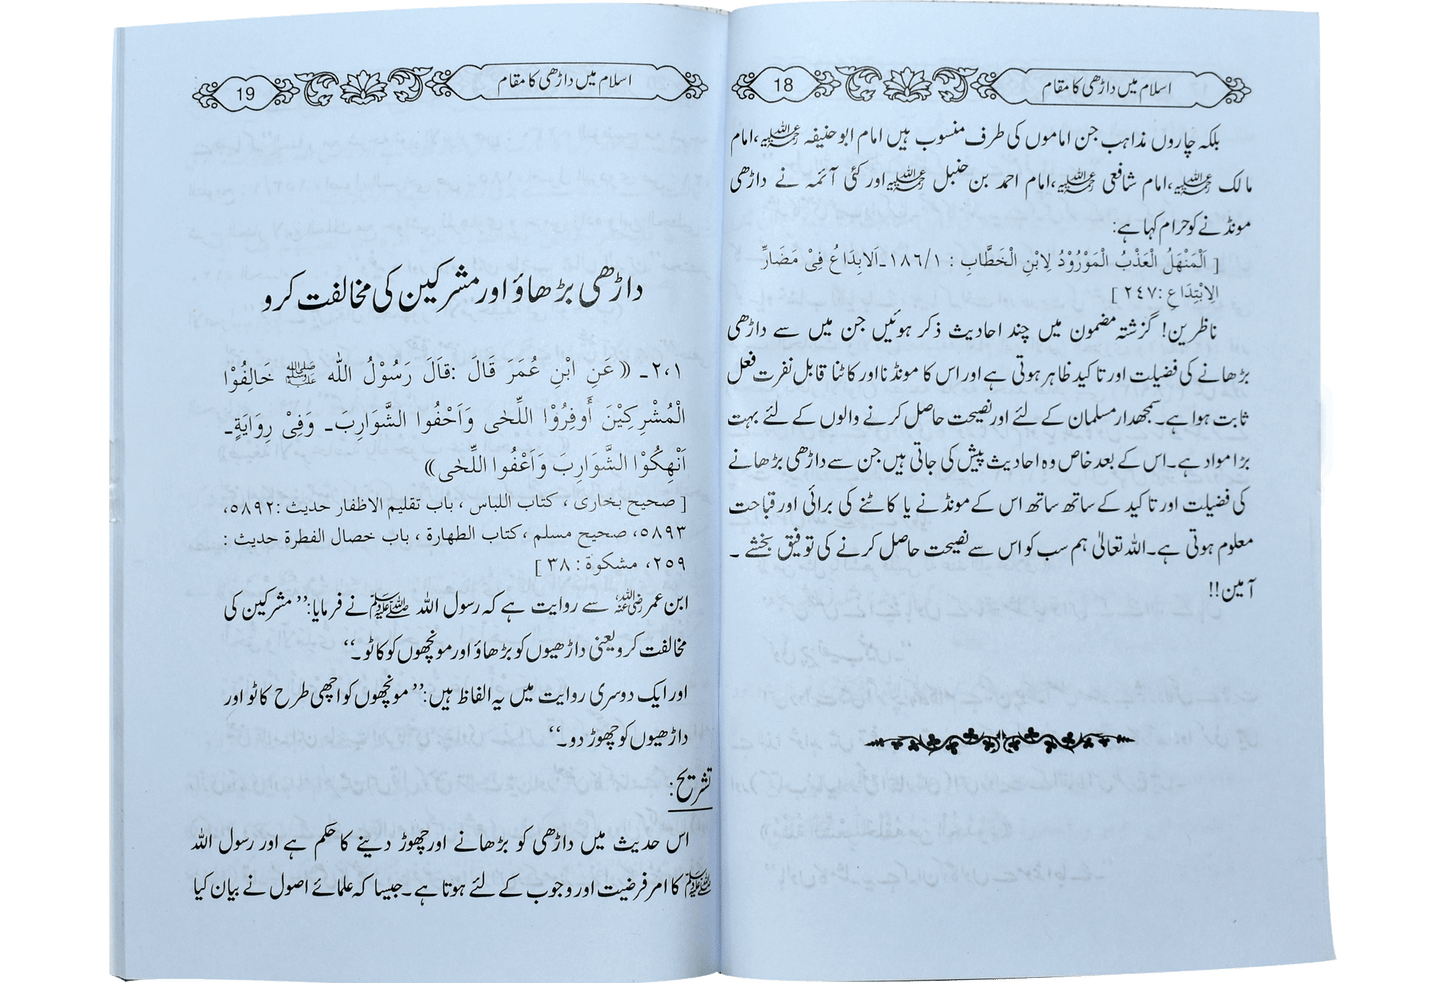 18
اسلام میں داڑھی کا مقام
بلکہ چاروں مذاہب جن اماموں کی طرف منسوب ہیں امام ابوحنیفہ رحمۃ اللہ علیہ، امام
مالک رحمۃ اللہ علیہ، امام شافعی رحمۃ اللہ علیہ، امام احمد بن حنبل رحمۃ اللہ علیہ اور کئی آئمہ نے داڑھی
مونڈنے کو حرام کہا ہے:
[ اَلْمَنْهَلُ الْعَذْبُ الْمَوْرُوْدُ لِابْنِ الْخَطَّابِ : ١٨٦/١۔اَلابِدَاعُ فِیْ مَضَارِّ
الِابْتِدَاعِ :٢٤٧ ]
ناظرین! گزشتہ مضمون میں چند احادیث ذکر ہوئیں جن میں سے داڑھی
بڑھانے کی فضیلت اور تاکید ظاہر ہوتی ہے اور اس کا مونڈنا اور کاٹنا قابل نفرت فعل
ثابت ہوا ہے۔ سمجھدار مسلمان کے لئے اور نصیحت حاصل کرنے والوں کے لئے بہت
بڑا مواد ہے۔ اس کے بعد خاص وہ احادیث پیش کی جاتی ہیں جن سے داڑھی بڑھانے
کی فضیلت اور تاکید کے ساتھ ساتھ اس کے مونڈنے یا کاٹنے کی برائی اور قباحت
معلوم ہوتی ہے۔ اللہ تعالیٰ ہم سب کو اس سے نصیحت حاصل کرنے کی توفیق بخشے ۔
آمین!!
19
اسلام میں داڑھی کا مقام
داڑھی بڑھاؤ اور مشرکین کی مخالفت کرو
٢،١۔ ((عَنِ ابْنِ عُمَرَ قَالَ :قَالَ رَسُوْلُ اللّٰه ﷺ خَالِفُوْا
الْمُشْرِكِيْنَ أَوفِرُوْا اللِّحٰى وَاَحْفُوا الشَّوَارِبَ۔ وَفِیْ رِوَايَةٍ۔
اَنْهِكُوْا الشَّوَارِبَ وَاَعْفُوا اللِّحٰى))
[ صحیح بخاری ، کتاب اللباس ، باب تقلیم الاظفار حدیث :٥٨٩٢،
٥٨٩٣، صحیح مسلم ،کتاب الطهارة ، باب خصال الفطرة حدیث :
٢٥٩، مشکوة : ٣٨ ]
ابن عمر رضی اللہ عنہ سے روایت ہے کہ رسول اللہ ﷺ نے فرمایا:’’مشرکین کی
مخالفت کرو یعنی داڑھیوں کو بڑھاؤ اور مونچھوں کو کاٹو۔‘‘
اور ایک دوسری روایت میں یہ الفاظ ہیں:’’مونچھوں کو اچھی طرح کاٹو اور
داڑھیوں کو چھوڑ دو۔‘‘
تشریح:
اس حدیث میں داڑھی کو بڑھانے اور چھوڑ دینے کا حکم ہے اور رسول اللہ
ﷺ کا امر فرضیت اور وجوب کے لئے ہوتا ہے۔ جیسا کہ علمائے اصول نے بیان کیا